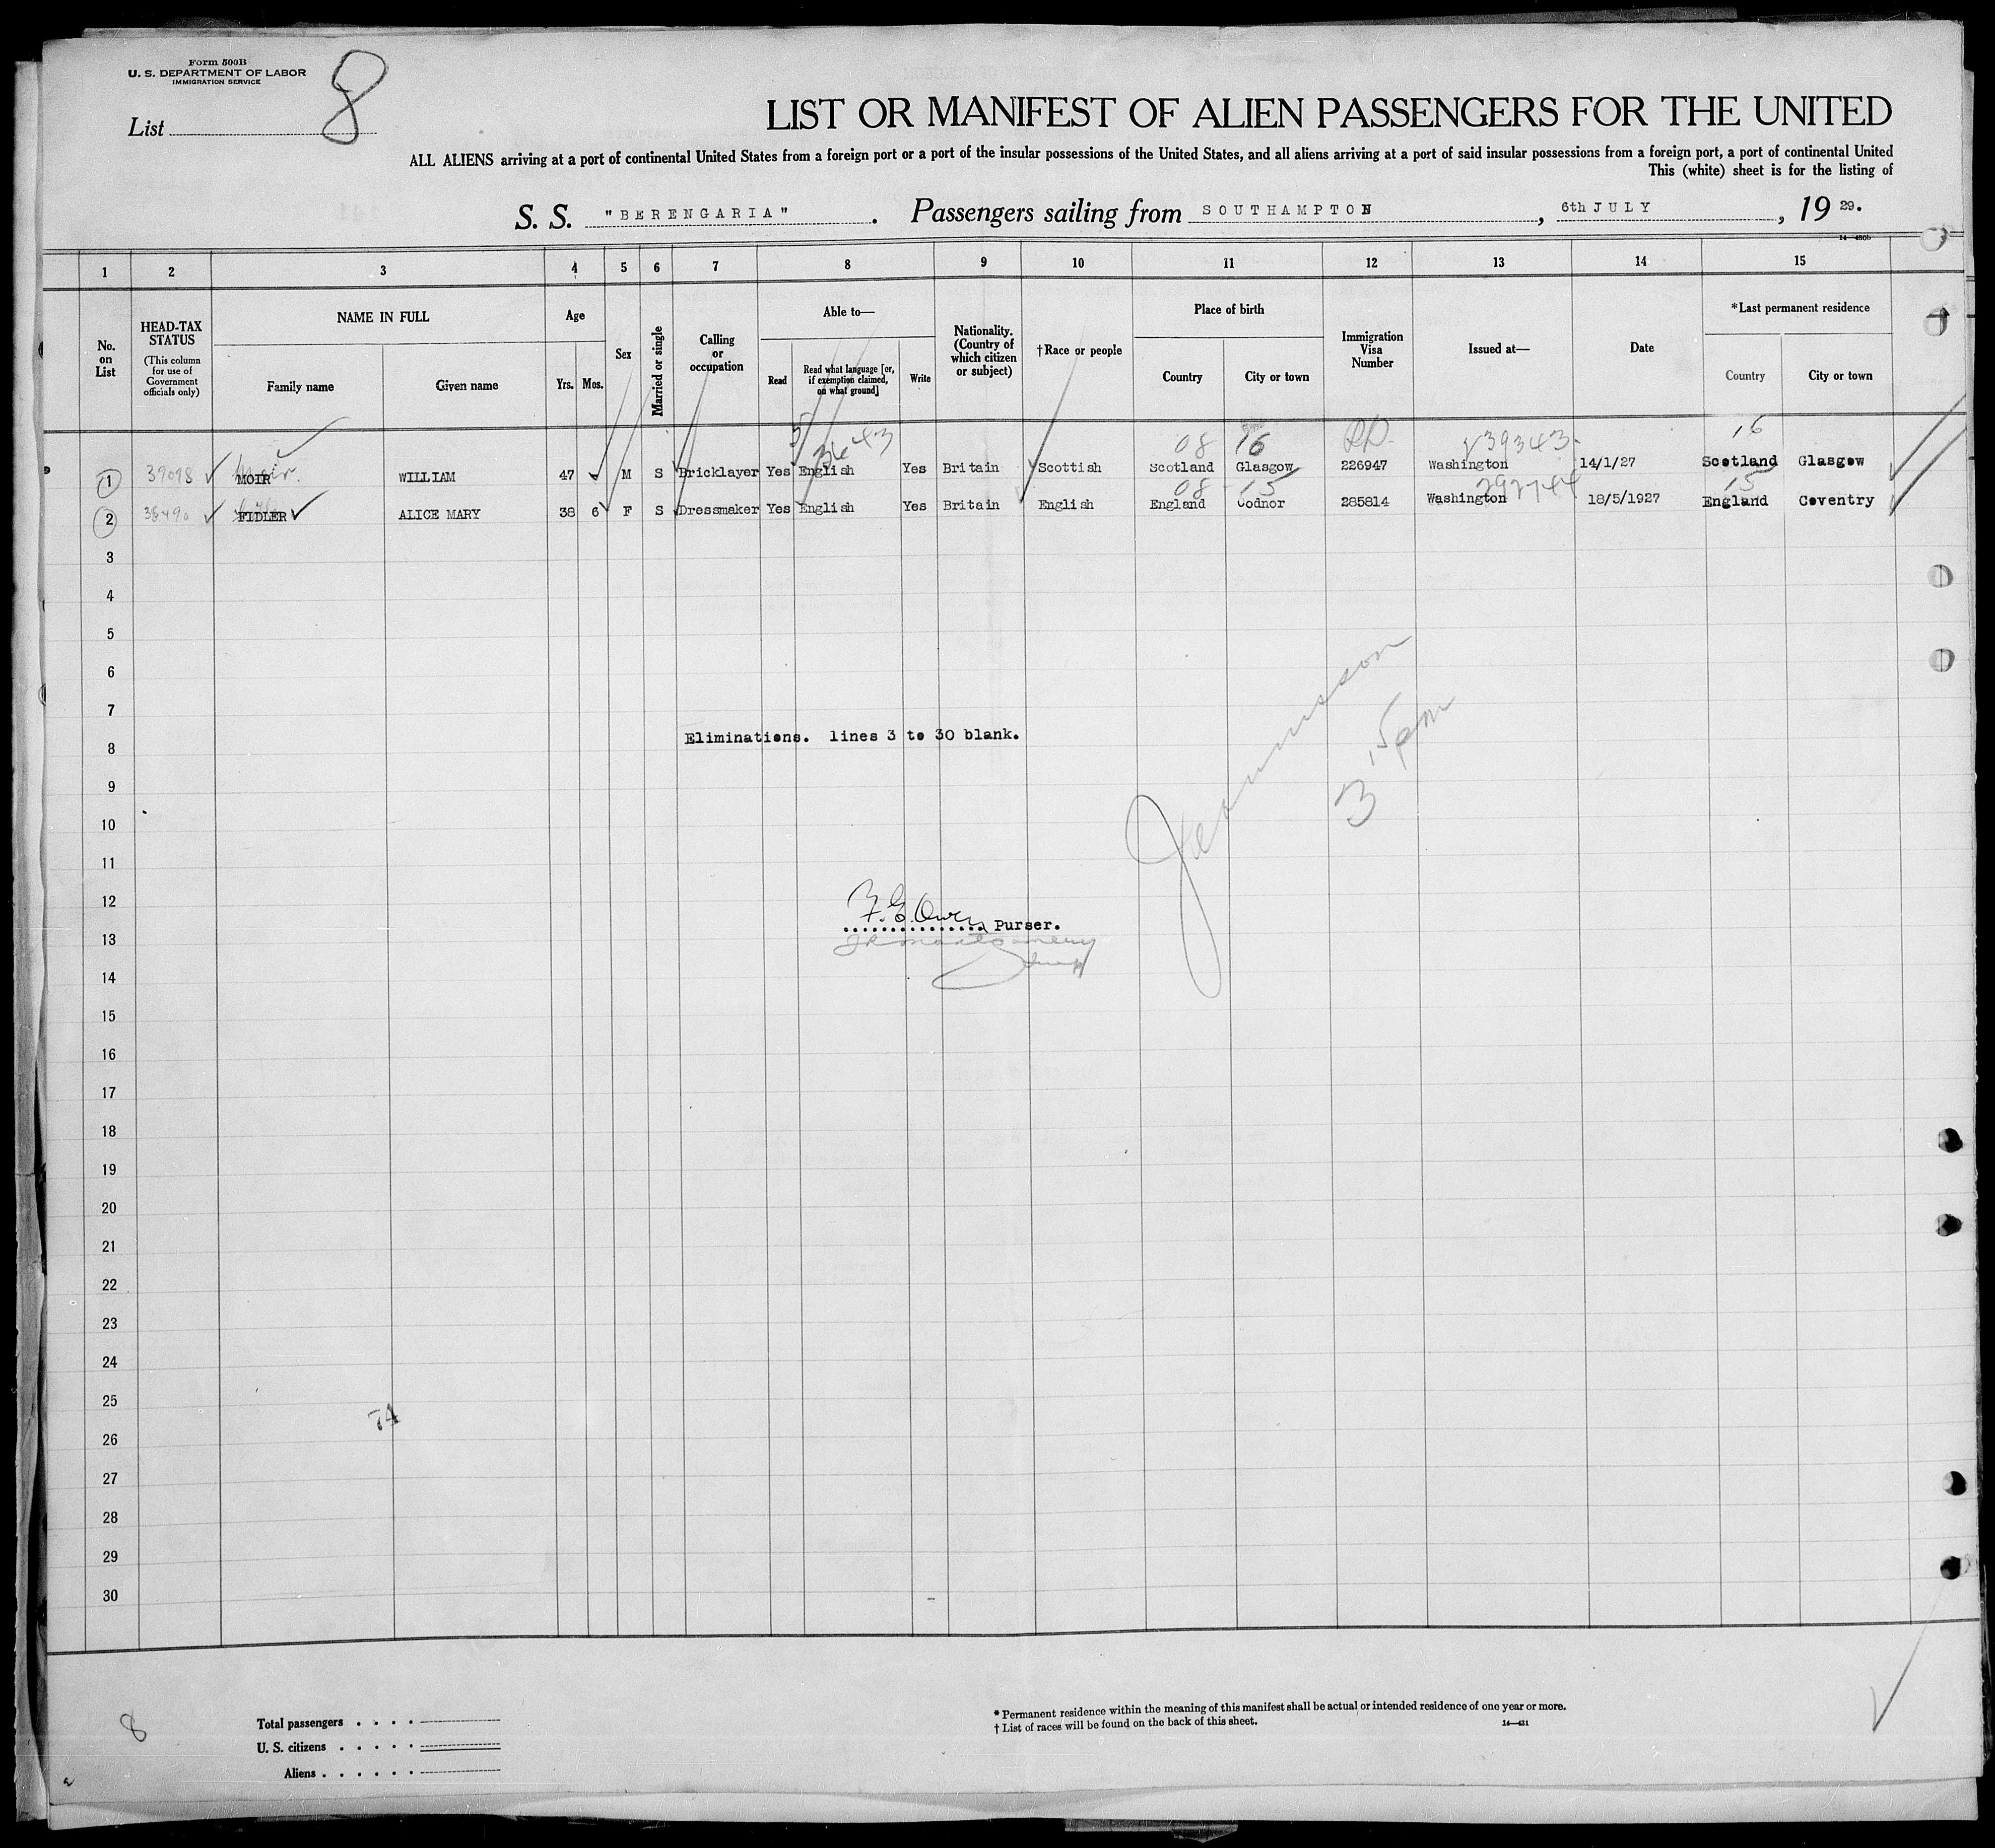 Form 500B
U. S. DEPARTMENT OF LABOR
IMMIGRATION SERVICE
List 8
LIST OR MANIFEST OF ALIEN PASSENGERS FOR THE UNITED
ALL ALIENS arriving at a port of continental United States from a foreign port or a port of the insular possessions of the United States, and all aliens arriving at a port of said insular possessions from a foreign port, a port of continental United
This (white) sheet is for the listing of
S. S. "BERENGARIA". Passengers sailing from SOUTHAMPTON, 6th JULY, 1929.
14—430b
1 2 3 4 5 6 7 8 9 10 11 12 13 14 15
No. on List
HEAD-TAX STATUS (This column for use of Government officials only)
NAME IN FULL
Family name Given name
Age
Yrs. Mos.
Sex
Married or single
Calling or occupation
Able to—
Read
Read what language [or, if exemption claimed, on what ground]
Write
Nationality. (Country of which citizen or subject)
†Race or people
Place of birth
Country City or town
Immigration Visa Number
Issued at—
Date
*Last permanent residence
Country City or town
3643 08 16 V39343 16
1 39098 MOIR Moir WILLIAM 47 M S Bricklayer Yes English Yes Britain Scottish Scotland Glasgow 226947 Washington 14/1/27 Scotland Glasgow
08 15 292744 15
2 38490 FIDLER ALICE MARY 38 6 F S Dressmaker Yes English Yes Britain English England Codnor 285814 Washington 18/5/1927 England Coventry
3
4
5
6
7
Eliminations. lines 3 to 30 blank.
8
3 15 pm
9
10
11
12
F. G. Owen Purser.
13
JR Montgomery
14
15
16
17
18
19
20
21
22
23
24
25
74
26
27
28
29
30
8
Total passengers
U. S. citizens
Aliens
* Permanent residence within the meaning of this manifest shall be actual or intended residence of one year or more.
† List of races will be found on the back of this sheet.
14—431